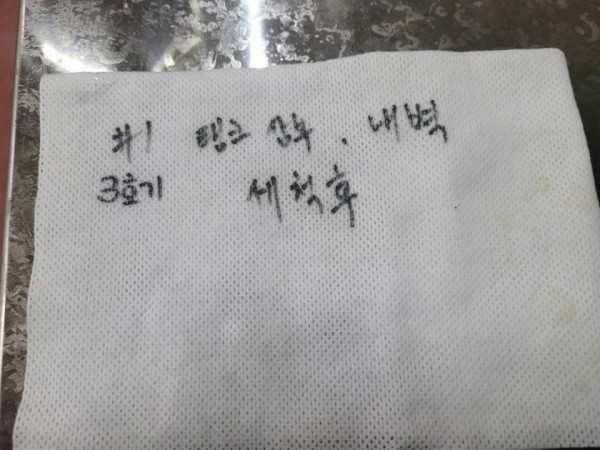 #1 탱크 상부, 내벽
3호기 세척후